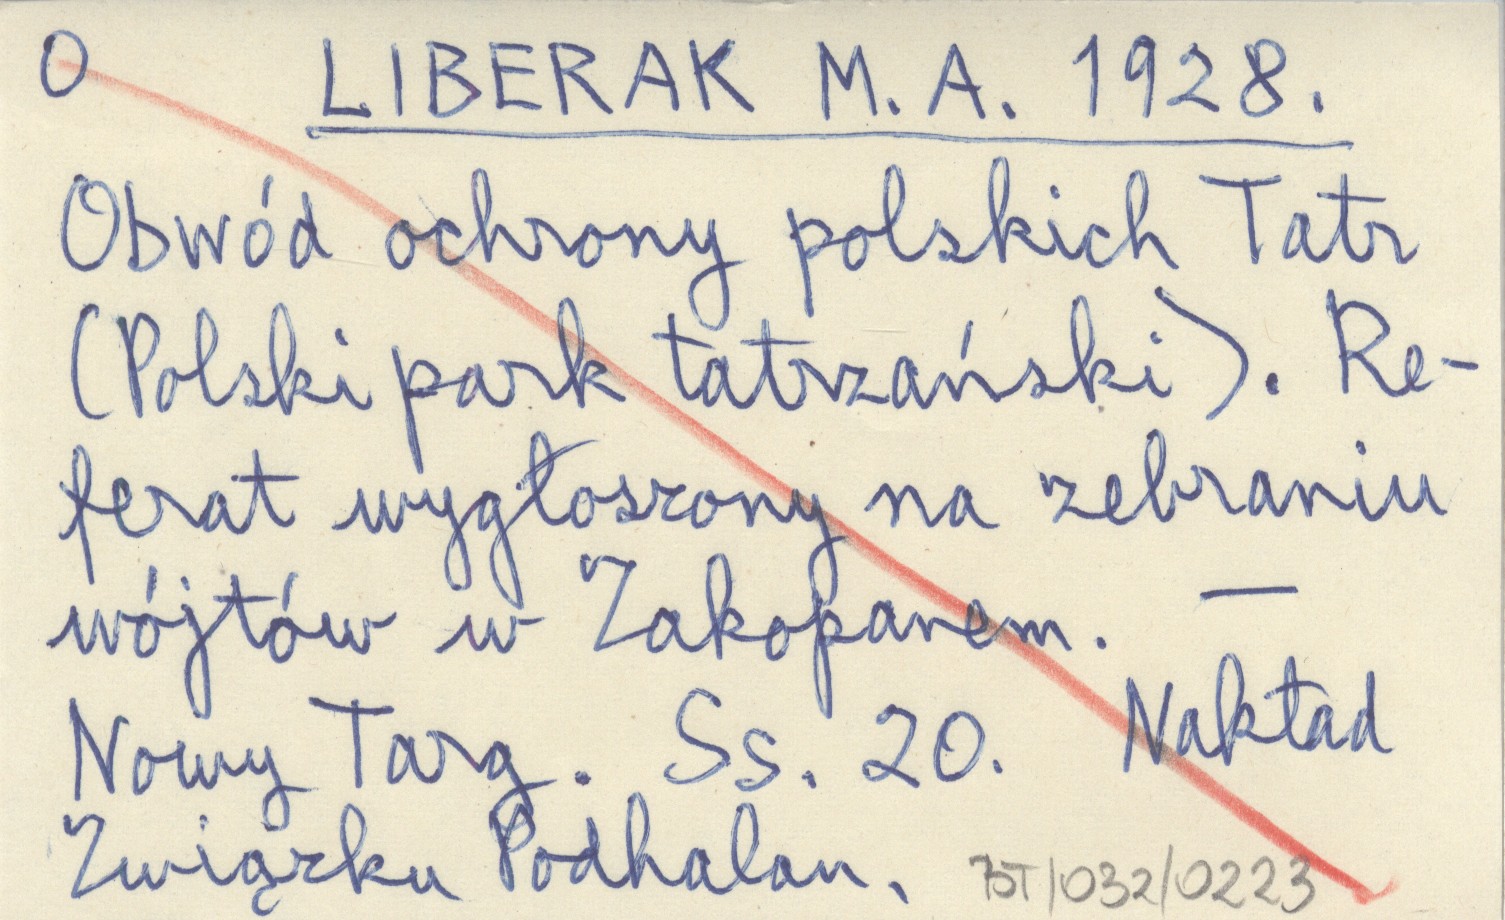 O LIBERAK M. A. 1928.
Obwód ochrony polskich Tatr
(Polski park tatrzański). Re-
ferat wygłoszony na zebraniu
wójtów w Zakopanem. —
Nowy Targ. Ss. 20. Nakład
Związku Podhalan.
/032/0223